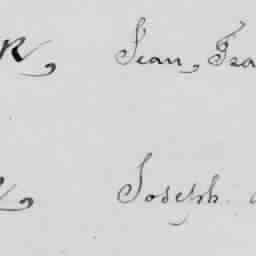 R, Jean, Fra
Joseph